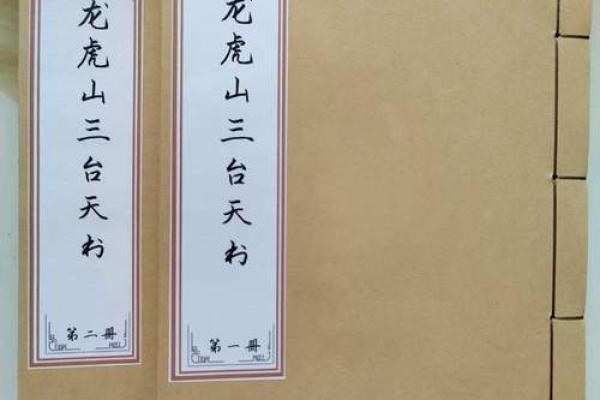 龙虎山三台天书
第一冊
龙虎山三台天书
第二冊